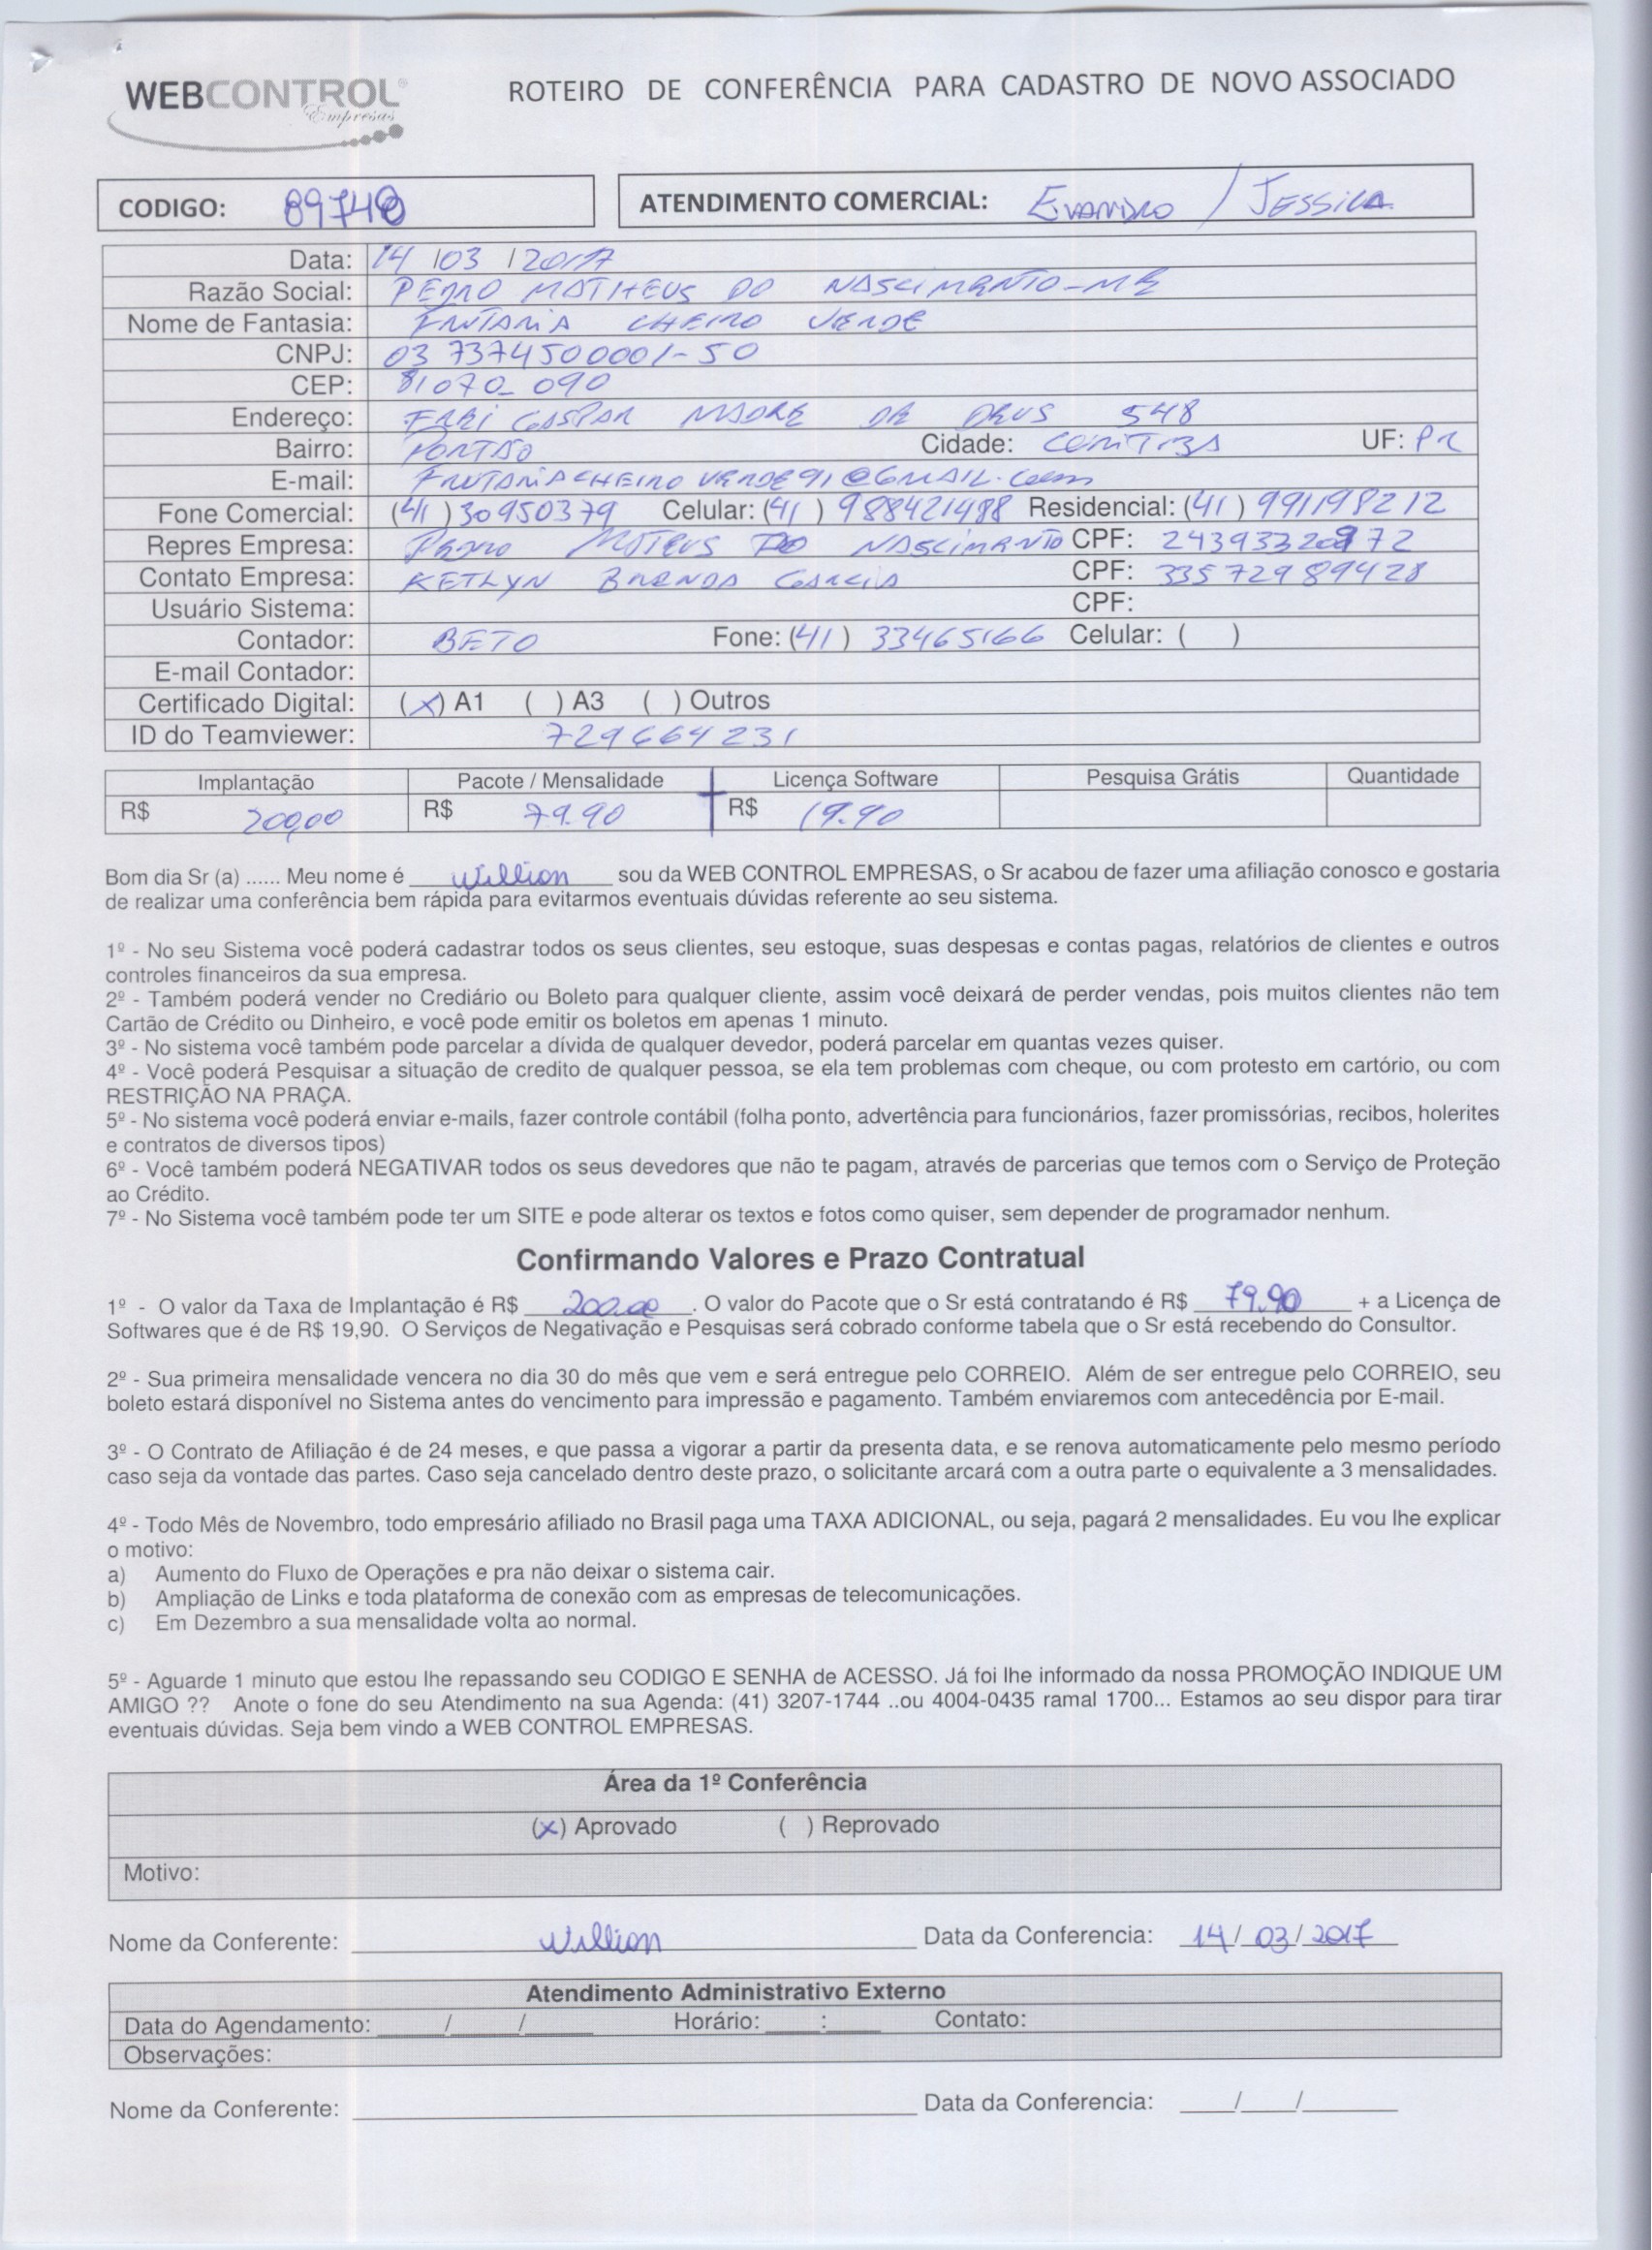 WEBCONTROL
Empresas
ROTEIRO DE CONFERÊNCIA PARA CADASTRO DE NOVO ASSOCIADO
CODIGO: 89740
ATENDIMENTO COMERCIAL: Evandro / Jessica
Data: 14 /03 /2017
Razão Social: PEDRO MATHEUS DO NASCIMENTO-ME
Nome de Fantasia: FRUTARIA CHEIRO VERDE
CNPJ: 03 7374500001-50
CEP: 81070-090
Endereço: FREI GASPAR MADRE DE DEUS 548
Bairro: PORTÃO Cidade: CURITIBA UF: PR
E-mail: FRUTARIACHEIROVERDE91@GMAIL.com
Fone Comercial: (41 ) 30950379 Celular: (41 ) 988421488 Residencial: (41 ) 991198212
Repres Empresa: PEDRO MATEUS DO NASCIMENTO CPF: 24393320972
Contato Empresa: KETLYN BRENDA GARCIA CPF: 33572989428
Usuário Sistema: CPF:
Contador: BETO Fone: (41 ) 33465166 Celular: ( )
E-mail Contador:
Certificado Digital: (X) A1 ( ) A3 ( ) Outros
ID do Teamviewer: 729664231
Implantação Pacote / Mensalidade Licença Software Pesquisa Grátis Quantidade
R$ 200,00 R$ 79.90 R$ 19.90
Bom dia Sr (a) ...... Meu nome é Willion sou da WEB CONTROL EMPRESAS, o Sr acabou de fazer uma afiliação conosco e gostaria
de realizar uma conferência bem rápida para evitarmos eventuais dúvidas referente ao seu sistema.
1º - No seu Sistema você poderá cadastrar todos os seus clientes, seu estoque, suas despesas e contas pagas, relatórios de clientes e outros
controles financeiros da sua empresa.
2º - Também poderá vender no Crediário ou Boleto para qualquer cliente, assim você deixará de perder vendas, pois muitos clientes não tem
Cartão de Crédito ou Dinheiro, e você pode emitir os boletos em apenas 1 minuto.
3º - No sistema você também pode parcelar a dívida de qualquer devedor, poderá parcelar em quantas vezes quiser.
4º - Você poderá Pesquisar a situação de credito de qualquer pessoa, se ela tem problemas com cheque, ou com protesto em cartório, ou com
RESTRIÇÃO NA PRAÇA.
5º - No sistema você poderá enviar e-mails, fazer controle contábil (folha ponto, advertência para funcionários, fazer promissórias, recibos, holerites
e contratos de diversos tipos)
6º - Você também poderá NEGATIVAR todos os seus devedores que não te pagam, através de parcerias que temos com o Serviço de Proteção
ao Crédito.
7º - No Sistema você também pode ter um SITE e pode alterar os textos e fotos como quiser, sem depender de programador nenhum.
Confirmando Valores e Prazo Contratual
1º - O valor da Taxa de Implantação é R$ 200.00 . O valor do Pacote que o Sr está contratando é R$ 79.90 + a Licença de
Softwares que é de R$ 19,90. O Serviços de Negativação e Pesquisas será cobrado conforme tabela que o Sr está recebendo do Consultor.
2º - Sua primeira mensalidade vencera no dia 30 do mês que vem e será entregue pelo CORREIO. Além de ser entregue pelo CORREIO, seu
boleto estará disponível no Sistema antes do vencimento para impressão e pagamento. Também enviaremos com antecedência por E-mail.
3º - O Contrato de Afiliação é de 24 meses, e que passa a vigorar a partir da presenta data, e se renova automaticamente pelo mesmo período
caso seja da vontade das partes. Caso seja cancelado dentro deste prazo, o solicitante arcará com a outra parte o equivalente a 3 mensalidades.
4º - Todo Mês de Novembro, todo empresário afiliado no Brasil paga uma TAXA ADICIONAL, ou seja, pagará 2 mensalidades. Eu vou lhe explicar
o motivo:
a) Aumento do Fluxo de Operações e pra não deixar o sistema cair.
b) Ampliação de Links e toda plataforma de conexão com as empresas de telecomunicações.
c) Em Dezembro a sua mensalidade volta ao normal.
5º - Aguarde 1 minuto que estou lhe repassando seu CODIGO E SENHA de ACESSO. Já foi lhe informado da nossa PROMOÇÃO INDIQUE UM
AMIGO ?? Anote o fone do seu Atendimento na sua Agenda: (41) 3207-1744 ..ou 4004-0435 ramal 1700... Estamos ao seu dispor para tirar
eventuais dúvidas. Seja bem vindo a WEB CONTROL EMPRESAS.
Área da 1º Conferência
(X) Aprovado ( ) Reprovado
Motivo:
Nome da Conferente: Willion Data da Conferencia: 14/ 03/ 2017
Atendimento Administrativo Externo
Data do Agendamento: ____/____/____ Horário: ____:____ Contato:
Observações:
Nome da Conferente: ____ Data da Conferencia: ____/____/____